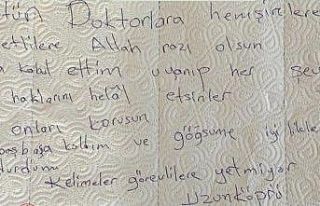 tün Doktorlara hemşirelere
etlilere Allah razı olsun
a kabul ettim uyanıp her şey
haklarını helâl etsinler
onları korusun
başbaşa kaldım ve göğsüme iyi
durdum
Kelimeler görevlilere yetmiyor
Uzunköprü